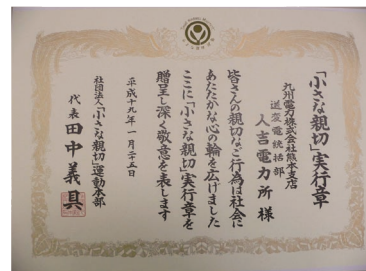 「小さな親切」実行章
九州電力株式会社熊本支店
送変電統括部
人吉電力所 様
皆さんの親切なご行為は社会に
あたたかな心の輪を広げました
ここに「小さな親切」実行章を
贈呈し深く敬意を表します
平成十九年 一月二十五日
社団法人「小さな親切」運動本部
代表 田中義具